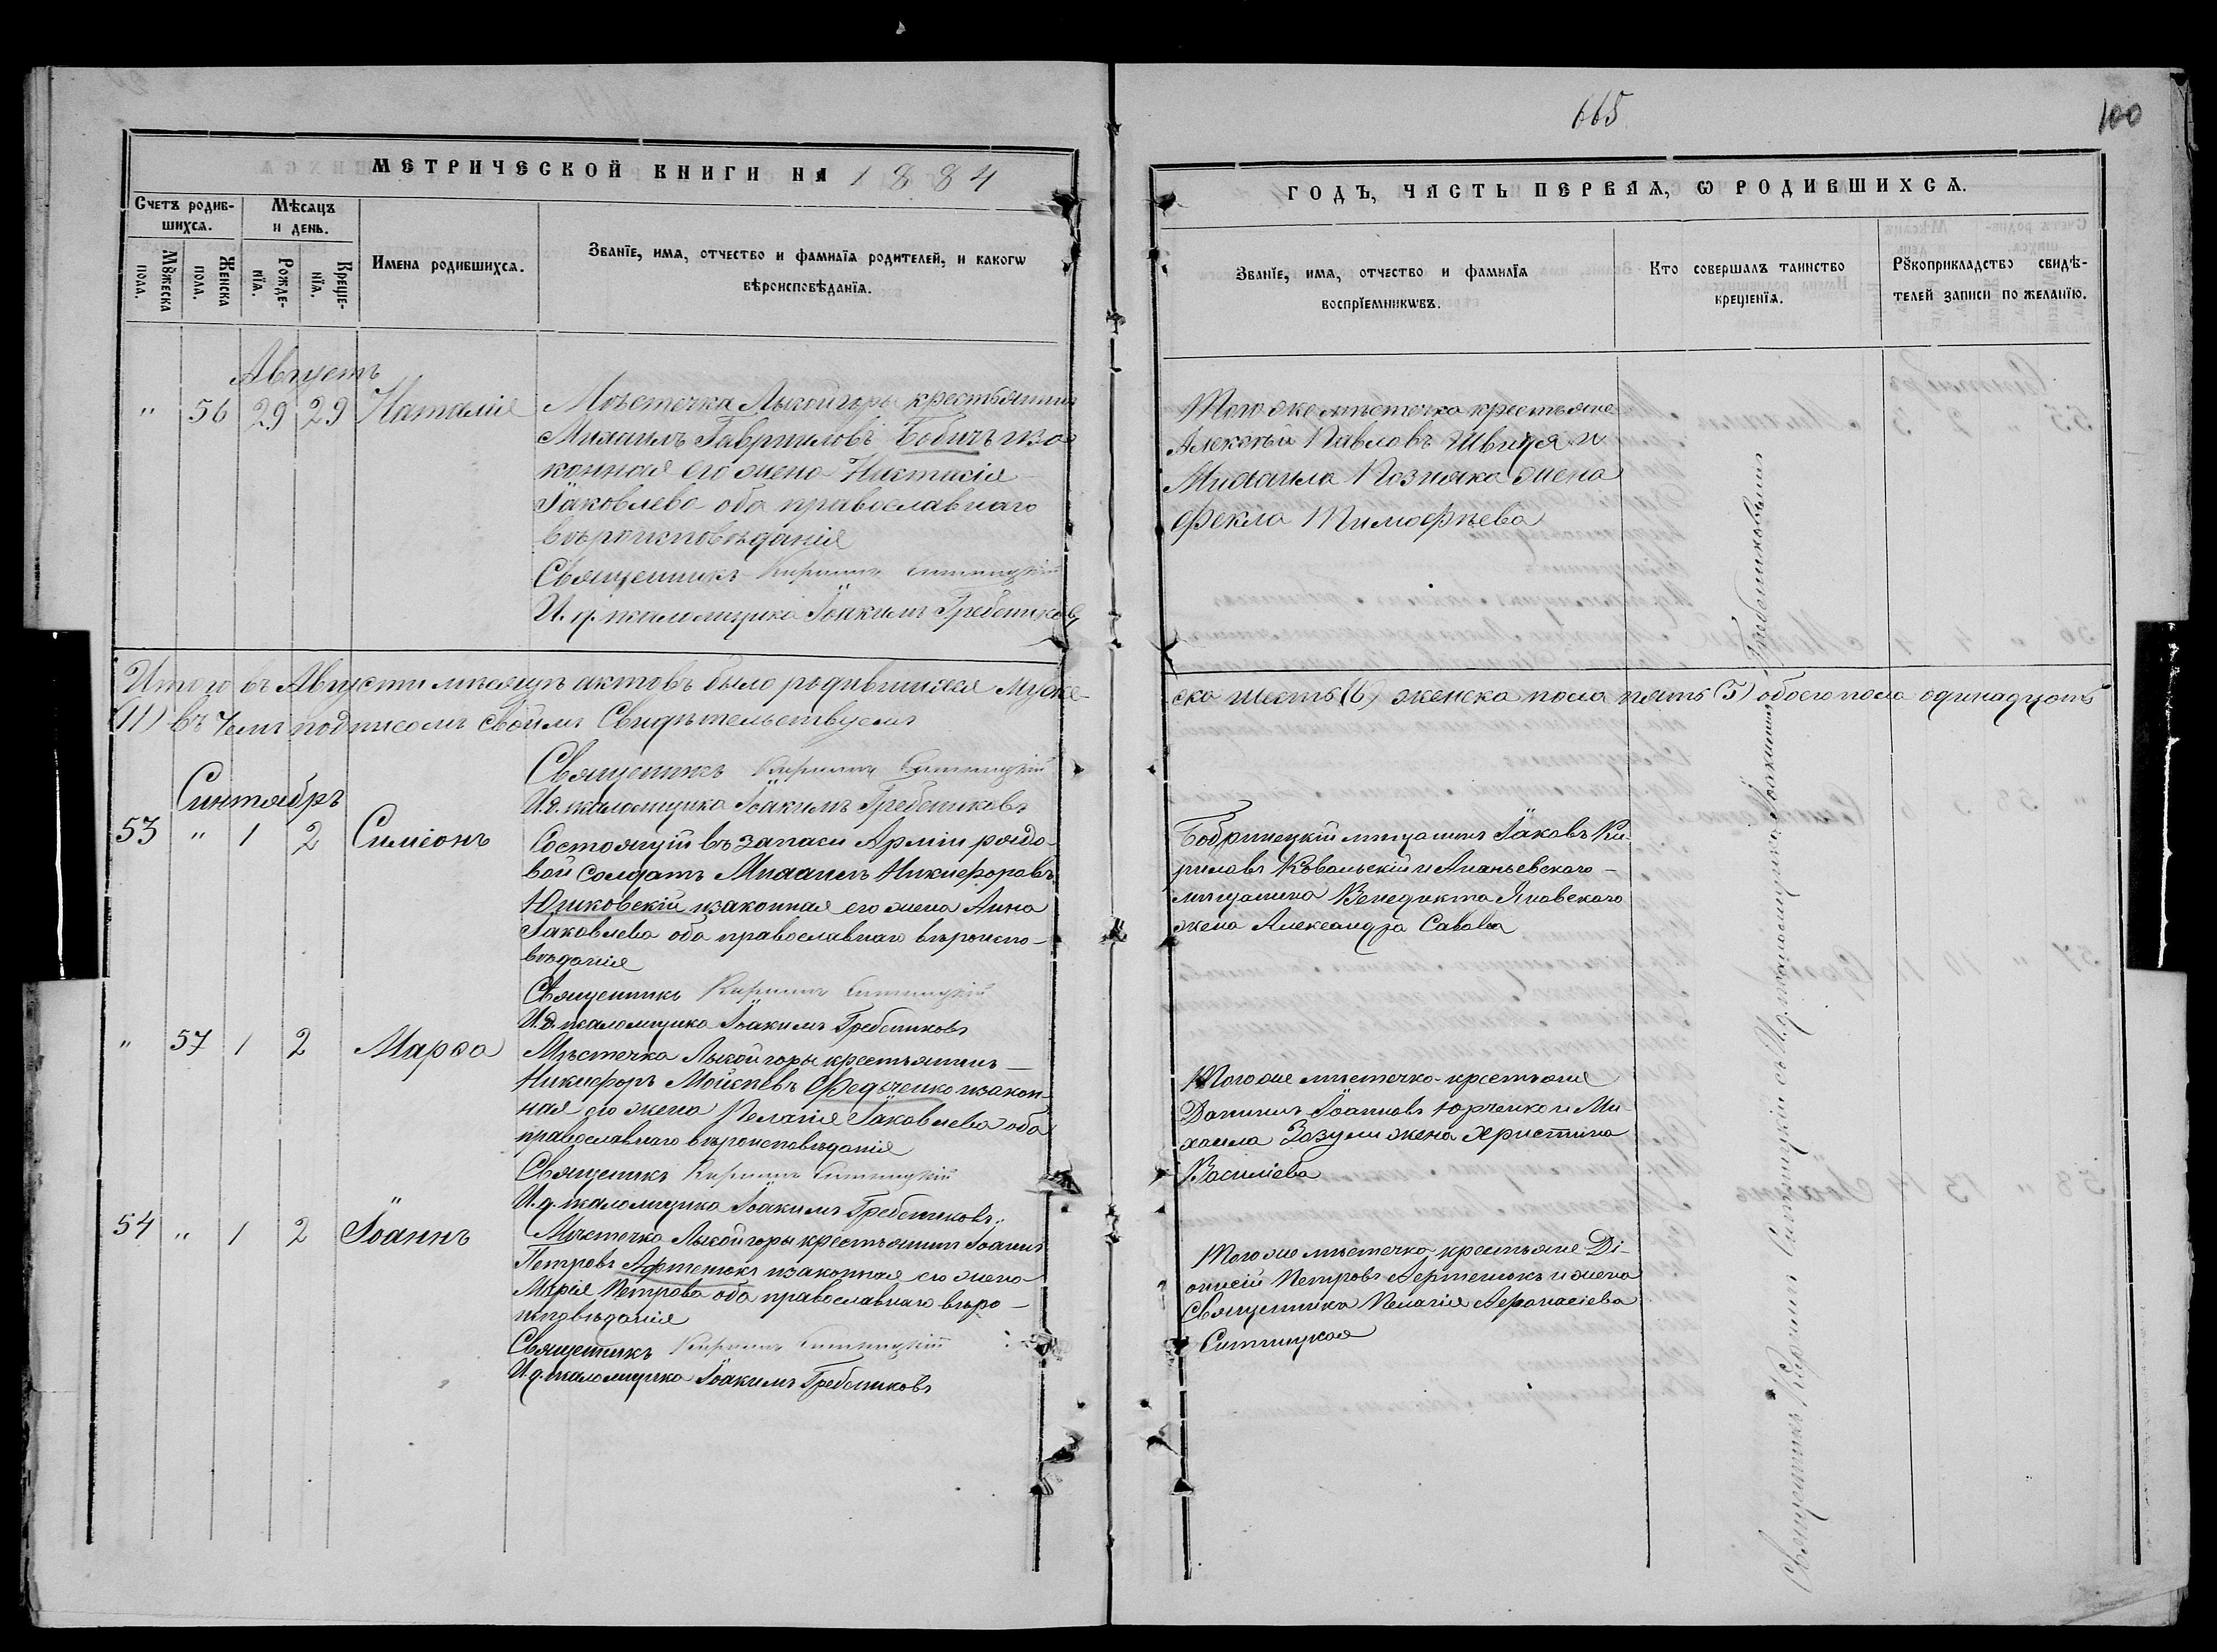 665
100
МЕТРИЧЕСКОЙ КНИГИ НА 1884
ГОДЪ, ЧАСТЬ ПЕРВАЯ, Ѡ РОДИВШИХСЯ.
Счетъ родив-
шихся.
Мꙋжеска
пола.
Женска
пола.
Мѣсяцъ
и день.
Рожде-
нїя.
Креще-
нїя.
Имена родившихся.
Званїе, имя, отчество и фамилїя родителей, и какогѡ
вѣроисповѣданїя.
Званїе, имя, отчество и фамилїя
воспрїемникѡвъ.
Кто совершалъ таинство
крещенїя.
Рꙋкоприкладство свидѣ-
телей записи по желанїю.
Августъ
" 56 29 29 Наталія
Мѣстечка Лысойгоры крестьянинъ
Михаилъ Гавриловъ Бобичъ иза-
конная его жена Настасія
Іаковлева оба православнаго
вѣроисповѣданія
Священникъ Кириллъ Ситницкій
И. д. псаломщика Іоакимъ Гребенниковъ
Того же мѣстечка крестьяне
Алексѣй Павловъ Швиця и
Михаила Позняка жена
Фекла Тимофѣева
Итого въ Августи мѣсяцѣ актовъ было родившихся муже-
ска шесть (6) женска пола пять (5) обоего пола одинадцать
(11) въ чемъ подписомъ своимъ Свидѣтельствуемъ
Священникъ Кириллъ Ситницкій
И.д. псаломщика Іоакимъ Гребениковъ
Синтябръ
53 " 1 2 Симеонъ
Состоящій въ запаси Арміи рядо-
вой солдатъ Михаилъ Никифоровъ
Юшковскій изаконная его жена Анна
Іаковлева оба православнаго вѣроиспо-
вѣданія
Священникъ Кириллъ Ситницкій
И.д. псаломщика Іоакимъ Гребениковъ
Бобринецкій мѣщанинъ Іаковъ Ки-
риловъ Ковальскій и Ананьевского -
мѣщанина Венедикта Яновского
жена Александра Савова
" 57 1 2 Марѳа
Мѣстечка Лысойгоры крестьянинъ -
Никифоръ Моисѣевъ Федченко изакон-
ная его жена Пелагія Іаковлева оба
православнаго вѣроисповѣданія
Священникъ Кириллъ Ситницкій
И.д. псаломщика Іоакимъ Гребениковъ.
Тогоже мѣстечка крестьяне
Даниилъ Іоанновъ Юрченко и Ми-
хаила Зозули жена Христина
Василіева
54 " 1 2 Іоаннъ
Мѣстечка Лысойгоры крестьянинъ Іоаннъ
Петровъ Афтенюкъ изаконная его жена
Марія Петрова оба православнаго вѣро-
исповѣданія
Священникъ Кириллъ Ситницкій
И.д. псаломщика Іоакимъ Гребениковъ
Тогоже мѣстечка крестьяне Ді-
онисій Петровъ Афтенюкъ и жена
Священника Пелагія Афонасіева
Ситницкая
Священникъ Кириллъ Ситницкій съ И.д. псаломщика Іоакимомъ Гребенниковымъ